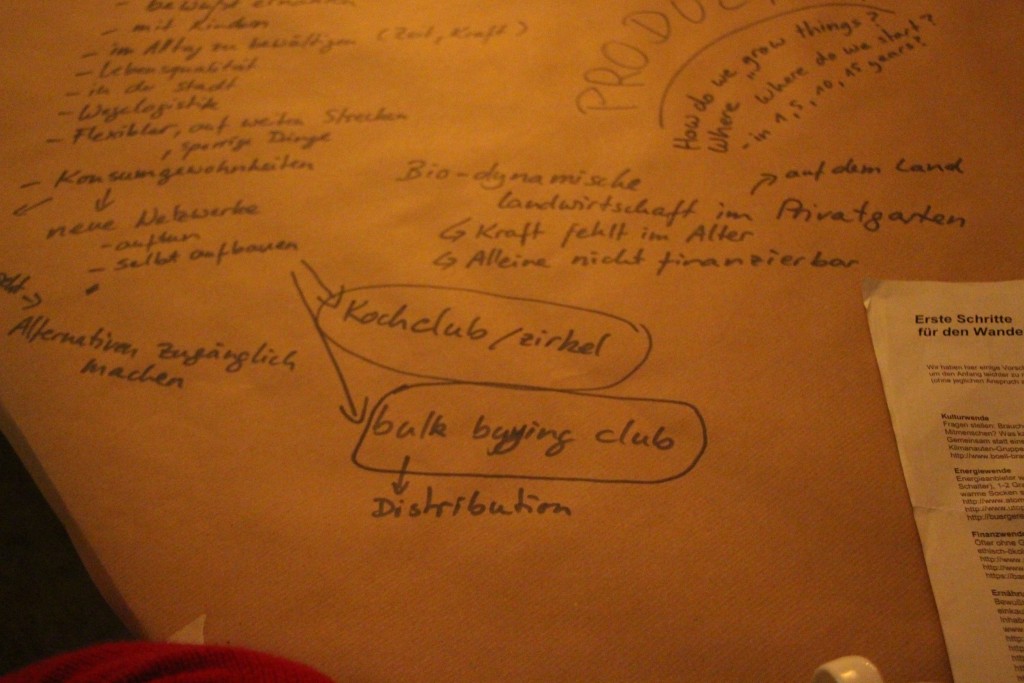 - bewußt ernähren
- mit Kindern
- im Alltag zu bewältigen (Zeit, Kraft)
- Lebensqualität
- in der Stadt
- Wegelogistik
- Flexibler, auf weiten Strecken
, sperrige Dinge
- Konsumgewohnheiten
neue Netzwerke
- auftun
- selbst aufbauen
Alternativen zugänglich
machen
PRODUC
How do we „grow things?
Where where do we start?
- in 1, 5, 10, 15 years?
Bio-dynamische
Landwirtschaft im Privatgarten
auf dem Land
Kraft fehlt im Alter
Alleine nicht finanzierbar
Kochclub/zirkel
bulk buying club
Distribution
Erste Schritte
für den Wande
Wir haben hier einige Vorsc
um den Anfang leichter zu
(ohne jeglichen Anspruch a
Kulturwende
Fragen stellen: Brauch
Mitmenschen? Was k
Gemeinsam statt eins
Klimanauten-Gruppe
http://www.boell-bre
Energiewende
Energieanbieter w
Schalter), 1-2 Gra
warme Socken s
http://www.atom
http://www.utop
http://buergers
Finanzwende
Öfter ohne G
ethisch-ökol
http://www.
http://www
https://ba
Ernähru
Bewußt
einkau
Inhalt
www
http
http
http
http